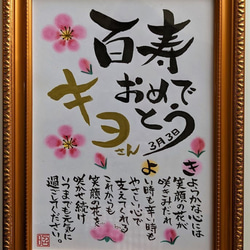 百寿
おめで
とう
キヨさん
3月3日
きようかな心には
笑顔の花が
咲きみだれ
よい時も辛い時も
やさしい心で
支えてくれる
これからも
笑顔の花を
咲かせ続け
いつまでも元気に
過ごしてください。